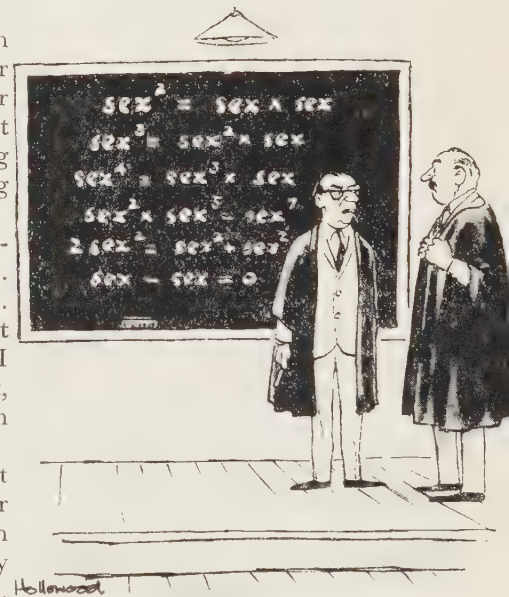 sex² = sex × sex
sex³ = sex² × sex
sex⁴ = sex³ × sex
sex² × sex⁵ = sex⁷
2 sex² = sex² + sex²
sex - sex = 0
Hollowood